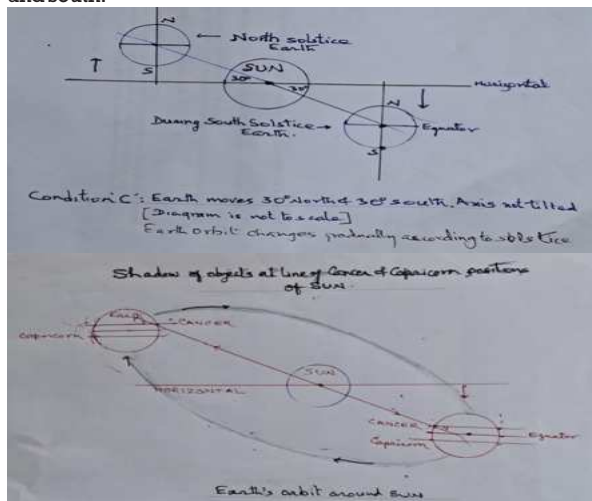 and south.
N
North solstice
Earth
S
SUN
30°
30°
Horizontal
N
During South Solstice
Earth.
Equator
S
Condition 'C': Earth moves 30° North & 30° south. Axis not tilted
[Diagram is not to scale]
Earth orbit changes gradually according to solstice
Shadow of objects at line of Cancer & Capricorn positions
of SUN.
CANCER
Capricorn
SUN
HORIZONTAL
CANCER
Capricorn
Equator
Earth's orbit around sun